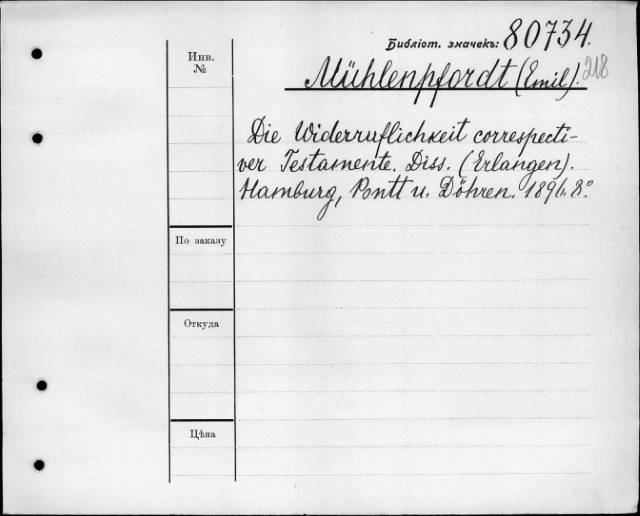 Библіот. значекъ: 80734.
218
Инв.
№
Mühlenpfordt (Emil).
Die Widerruflichkeit correspecti-
ver Testamente. Diss. (Erlangen).
Hamburg, Pontt u. Döhren. 1896. 8.º
По заказу
Откуда
Цѣна